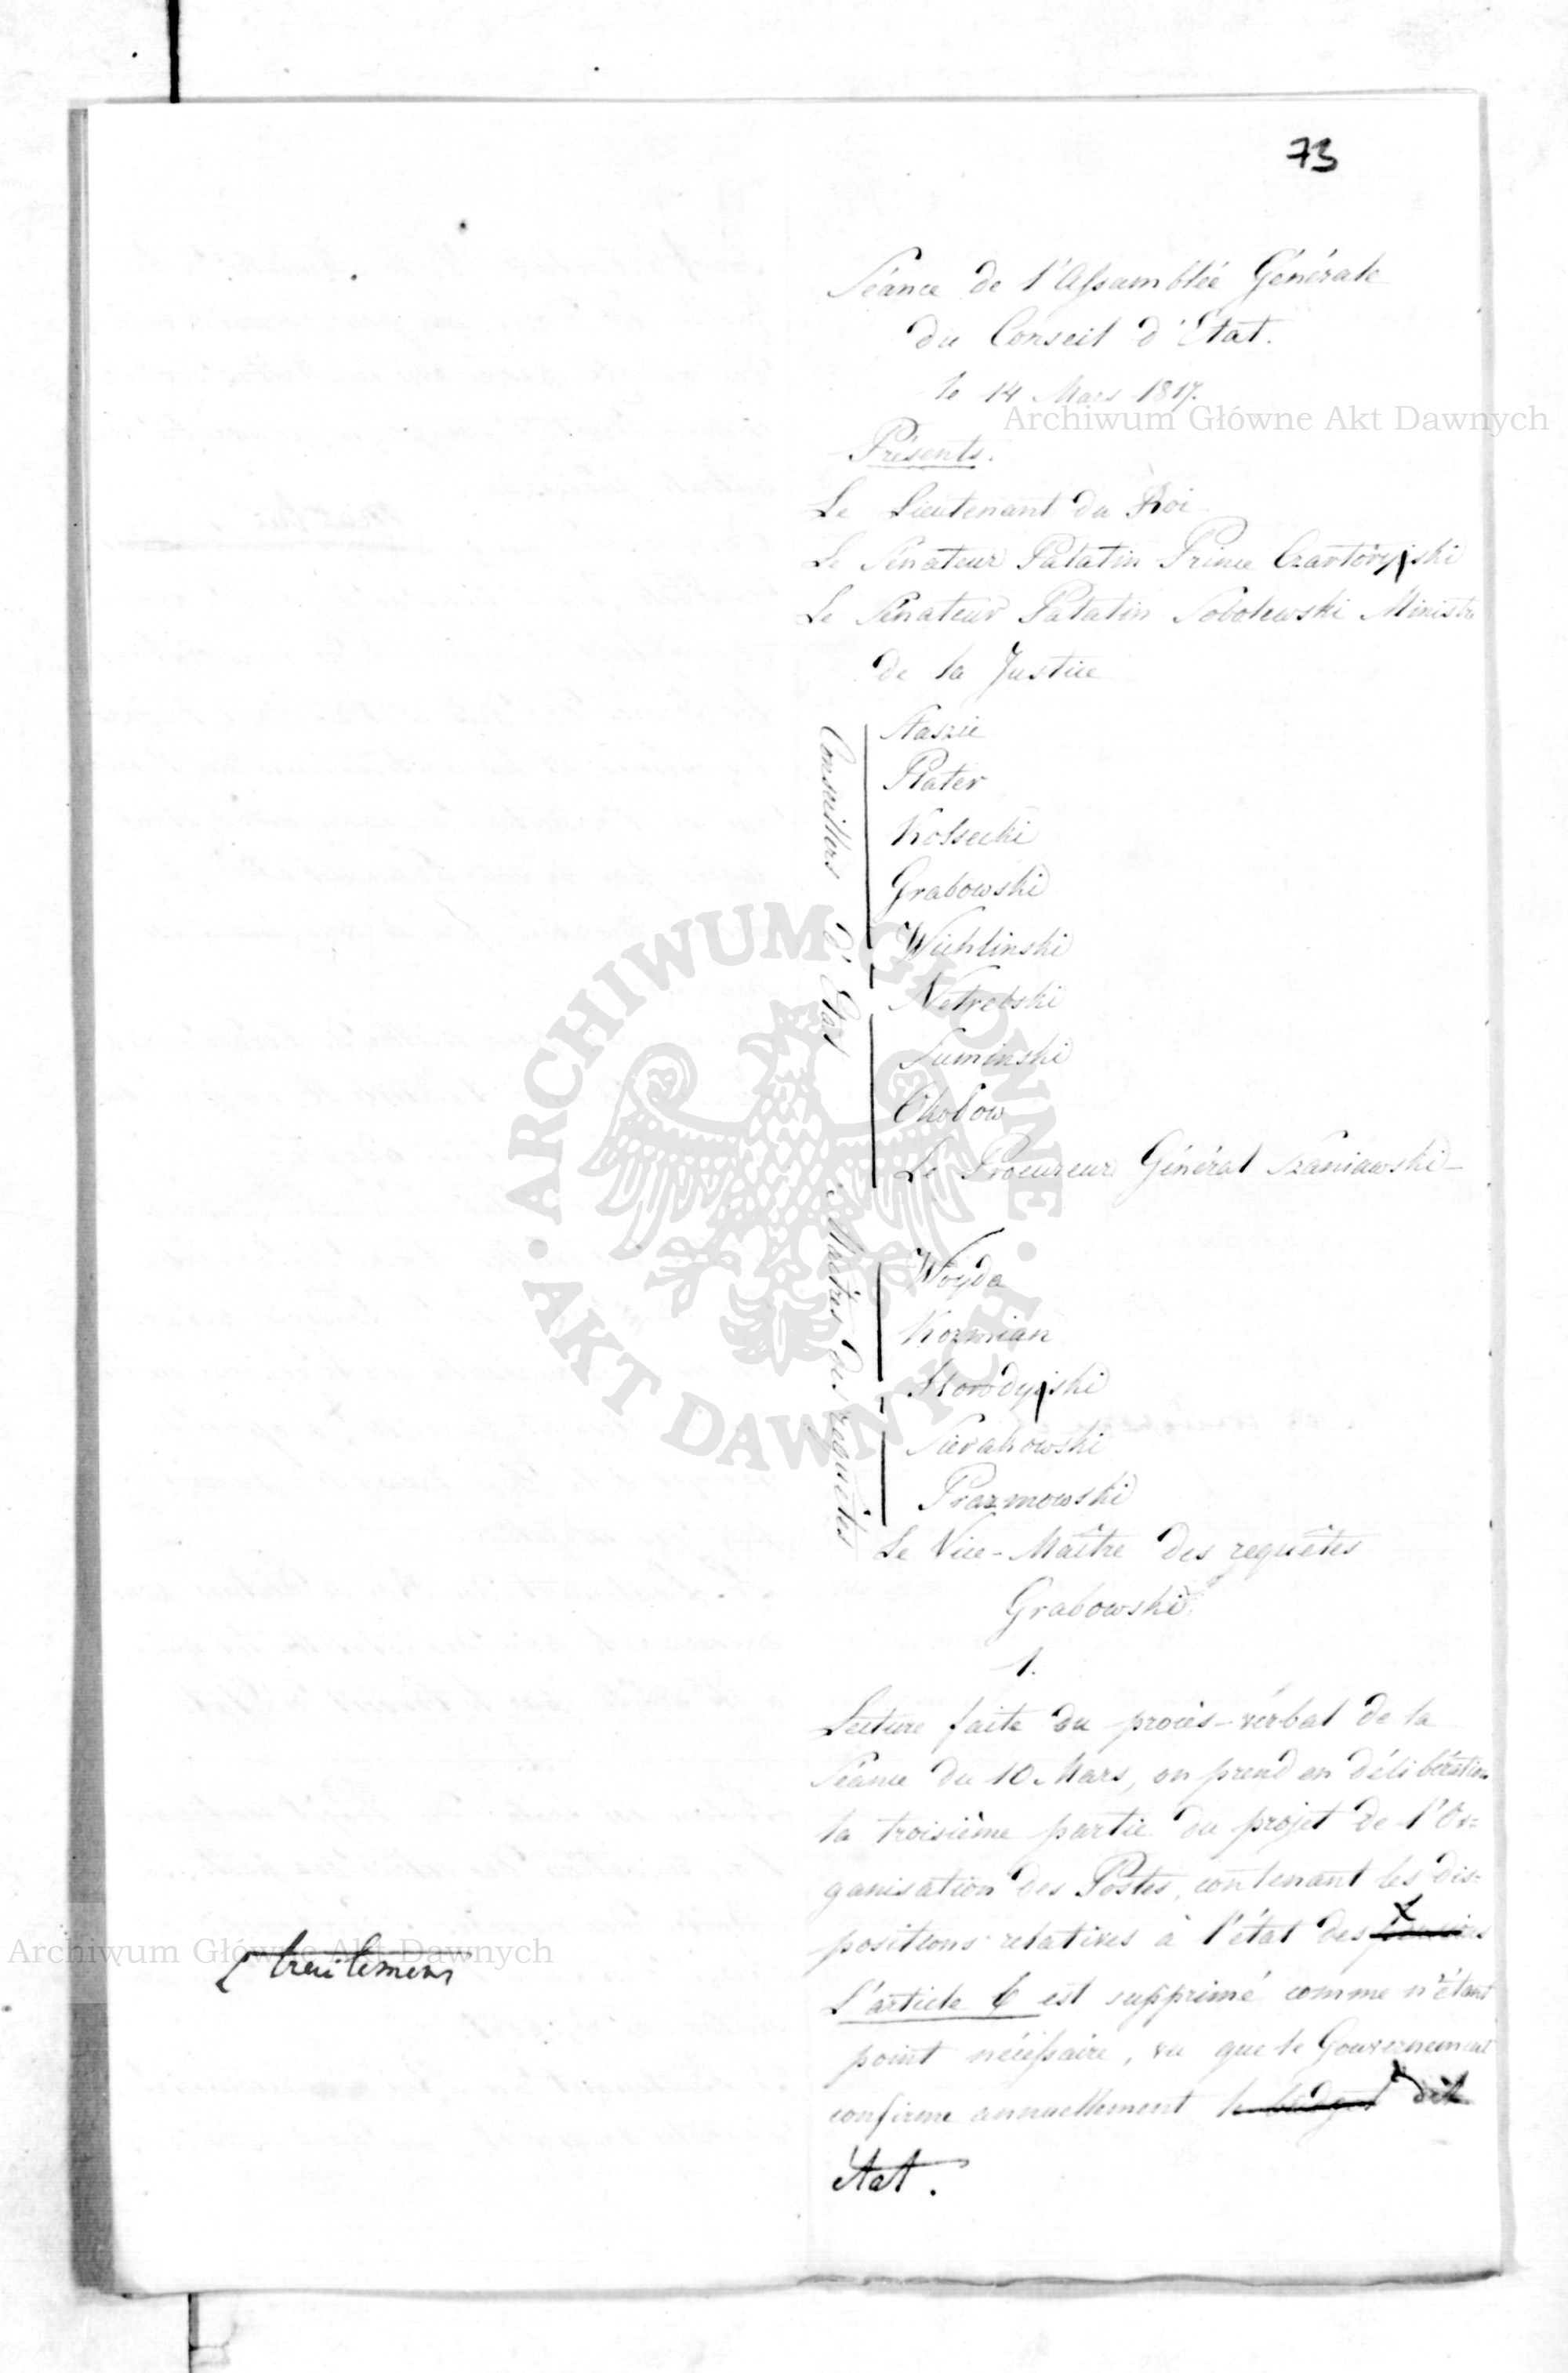 73
Séance de l'Assamblée Générale
du Conseil d'Etat.
le 14 Mars 1817.
Archiwum Główne Akt Dawnych
Présents.
Le Lieutenant du Roi
Le Sénateur Palatin Prince Czartoryski
Le Sénateur Palatin Sobolewski Ministre
de la Justice
Conseillers d'Etat
Staszic
Plater
Kossecki
Grabowski
Wichlinski
Netrebski
Suminski
Okołow
Le Procureur Général Szaniawski
ARCHIWUM GŁÓWNE
AKT DAWNYCH
Maîtres des requêtes
Woyda
Kozmian
Horodyski
Sierakowski
Prazmowski
Le Vice-Maître des requêtes
Grabowski
1.
Lecture faite du procès-verbal de la
Séance du 10 Mars, on prend en délibération
la troisième partie du projet de l'Or=
ganisation des Postes, contenant les dis=
positions relatives à l'état des pensions
Archiwum Główne Akt Dawnych
traitemens
L'article 6 est supprimé comme n'étant
point nécessaire, vu que le Gouvernement
confirme annuellement le budget dit
état.